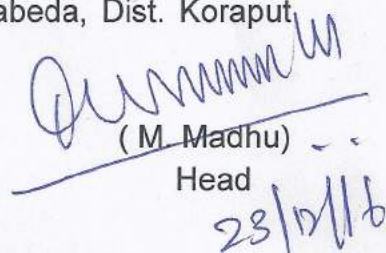 abeda, Dist. Koraput
( M. Madhu)
Head
23/12/16